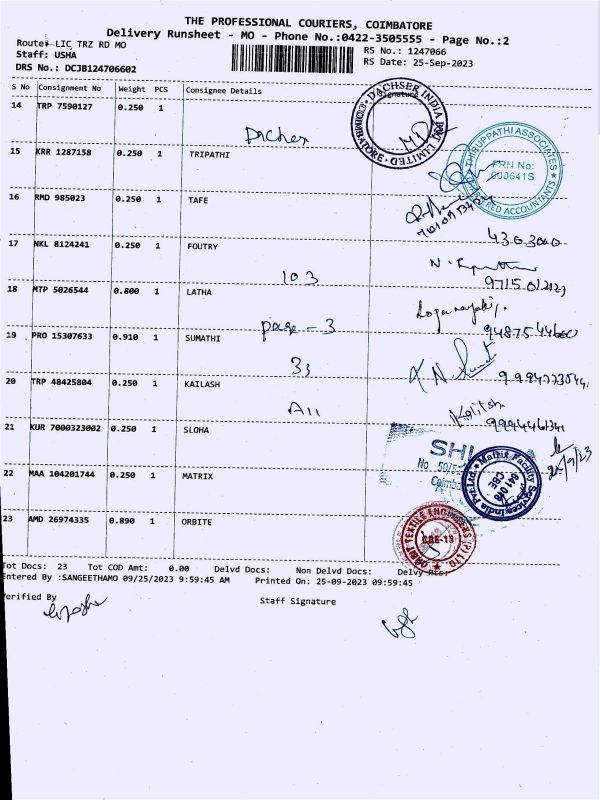 THE PROFESSIONAL COURIERS, COIMBATORE
Delivery Runsheet - MO - Phone No.:0422-3505555 - Page No.:2
Route# LIC TRZ RD MO
RS No.: 1247066
Staff: USHA
RS Date: 25-Sep-2023
DRS No.: DCJB124706602
S No Consignment No Weight PCS Consignee Details
Signature
14 TRP 7590127 0.250 1
Dacher
DACHSER INDIA PVT LIMITED COIMBATORE
15 KRR 1287158 0.250 1 TRIPATHI
THIRUPPATHI ASSOCIATES
FRN No:
CHARTERED ACCOUNTANTS
16 RMD 985023 0.250 1 TAFE
17 NKL 8124241 0.250 1 FOUTRY
4303000
103
18 MTP 5026544 0.800 1 LATHA
Loganayaki
page - 3
19 PRO 15307633 0.910 1 SUMATHI
33
20 TRP 48425804 0.250 1 KAILASH
Kailash
A11
21 KUR 7000323002 0.250 1 SLOHA
SHI
No 50/5
Coimba
22 MAA 104201744 0.250 1 MATRIX
Mathix Facility Services India Pvt Ltd
CBE
25/9/23
23 AMD 26974335 0.890 1 ORBITE
ORBIT TEXTILE ENGINEERS (P) LTD
CBE-13
Tot Docs: 23 Tot COD Amt: 0.00 Delvd Docs: Non Delvd Docs: Delvy Pts:
Entered By :SANGEETHAMO 09/25/2023 9:59:45 AM Printed On: 25-09-2023 09:59:45
Verified By
Staff Signature